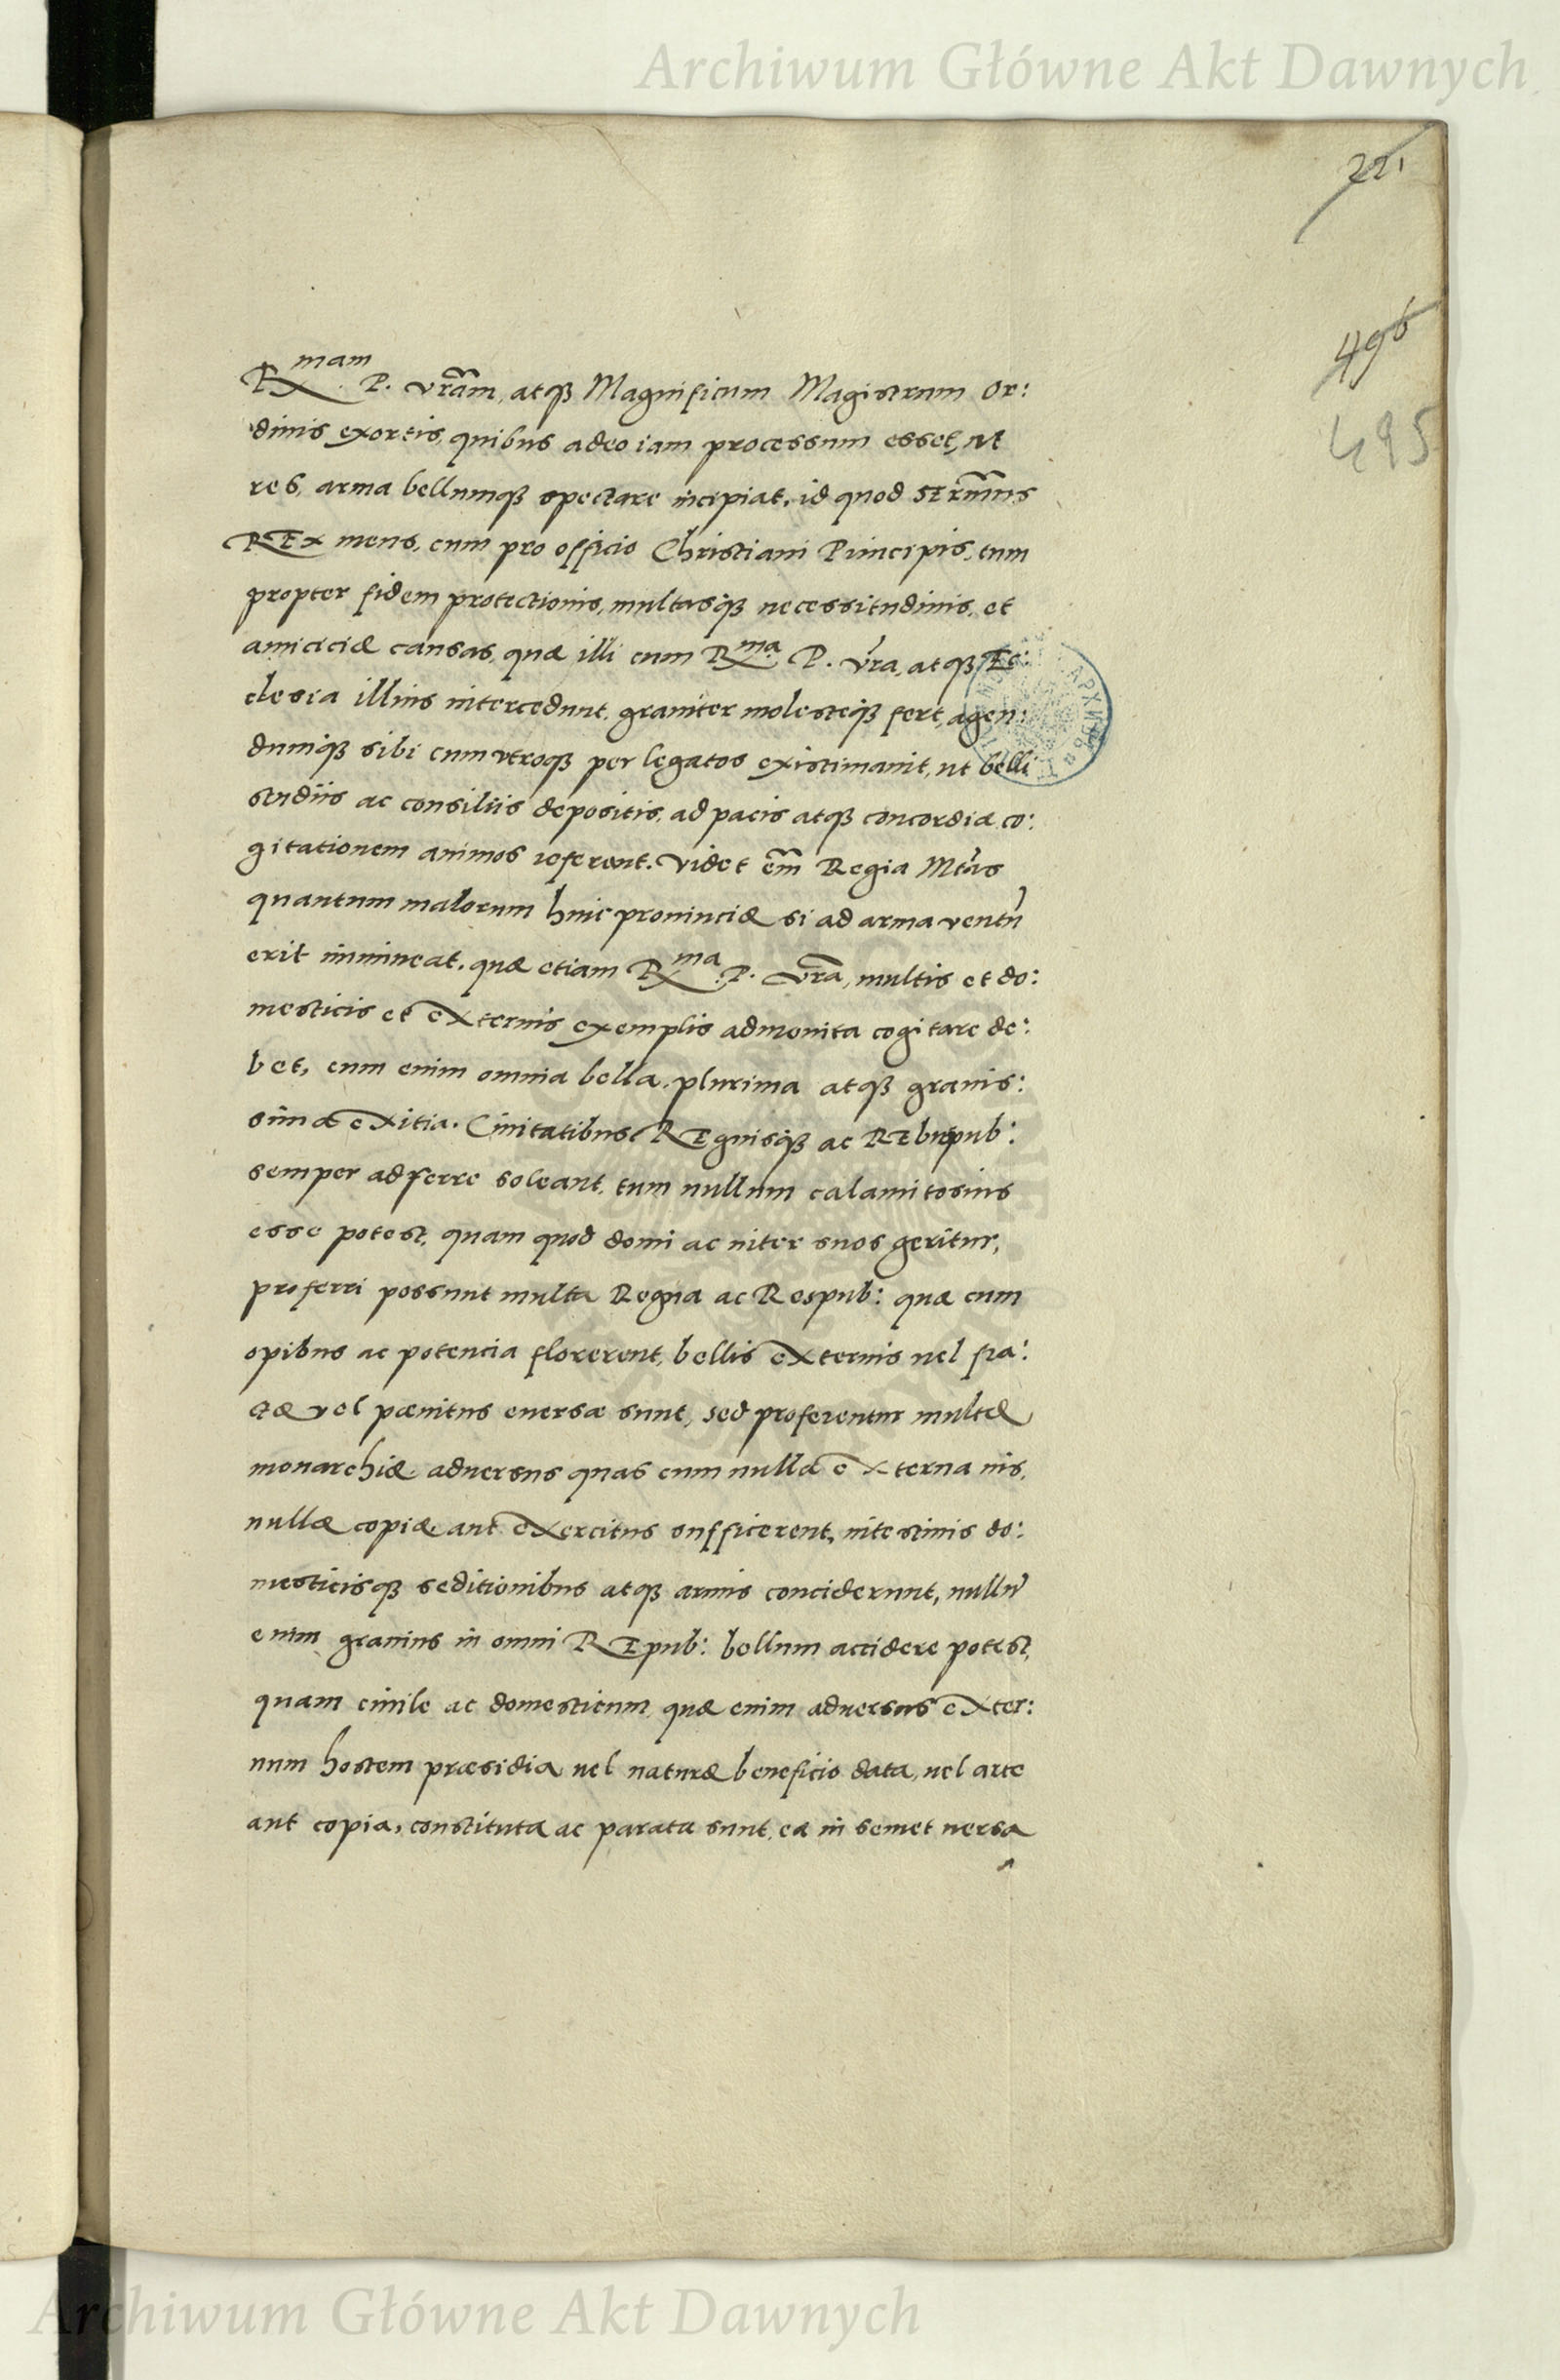 Archiwum Główne Akt Dawnych
221
496
495
R mam P. vram, atqȝ Magnificum Magistrum Or:
dinis exortis, quibus adeo iam processum esset, ut
res, arma bellumqȝ spectare incipiat, id quod SERmus
REx meus, cum pro officio Christiani Principis, tum
propter fidem protectionis, multasqȝ necessitudinis, et
amiciciæ causas, quæ illi cum R ma P. vra, atqȝ Ec:
clesia illius intercedunt, grauiter molesteqȝ fert, agen:
dumqȝ sibi cum vtroqȝ per legatos existimauit, ut belli
studiis ac consiliis depositis, ad pacis atqȝ concordiæ co:
gitationem animos referent. Videt em Regia Mtas
quantum malorum huic prouinciæ si ad arma ventū
erit immineat, quæ etiam R ma P. vra, multis et do:
mesticis et externis exemplis admonita cogitare de:
bet, cum enim omnia bella, plurima atqȝ grauis:
sima exitia. Ciuitatibus REgnisqȝ ac REbuspub:
semper adferre soleant, tum nullum calamitosius
esse potest, quam quod domi ac inter suos geritur,
proferri possunt multa Regna ac Respub: quæ cum
opibus ac potencia florerent, bellis externis uel fra:
ctæ vel pænitus euersæ sunt, sed proferentur multæ
monarchiæ, aduersus quas cum nulla externa uis,
nullæ copiæ, aut exercitus sufficerent, intestinis do:
mesticisqȝ seditionibus atqȝ armis conciderunt, nullū
enim grauius in omni REpub: bellum accidere potest,
quam ciuile ac domesticum, quæ enim aduersus exter:
num hostem præsidia uel naturæ beneficio data, uel arte
aut copia, constituta ac parata sunt, ea in semet uersa
Archiwum Główne Akt Dawnych